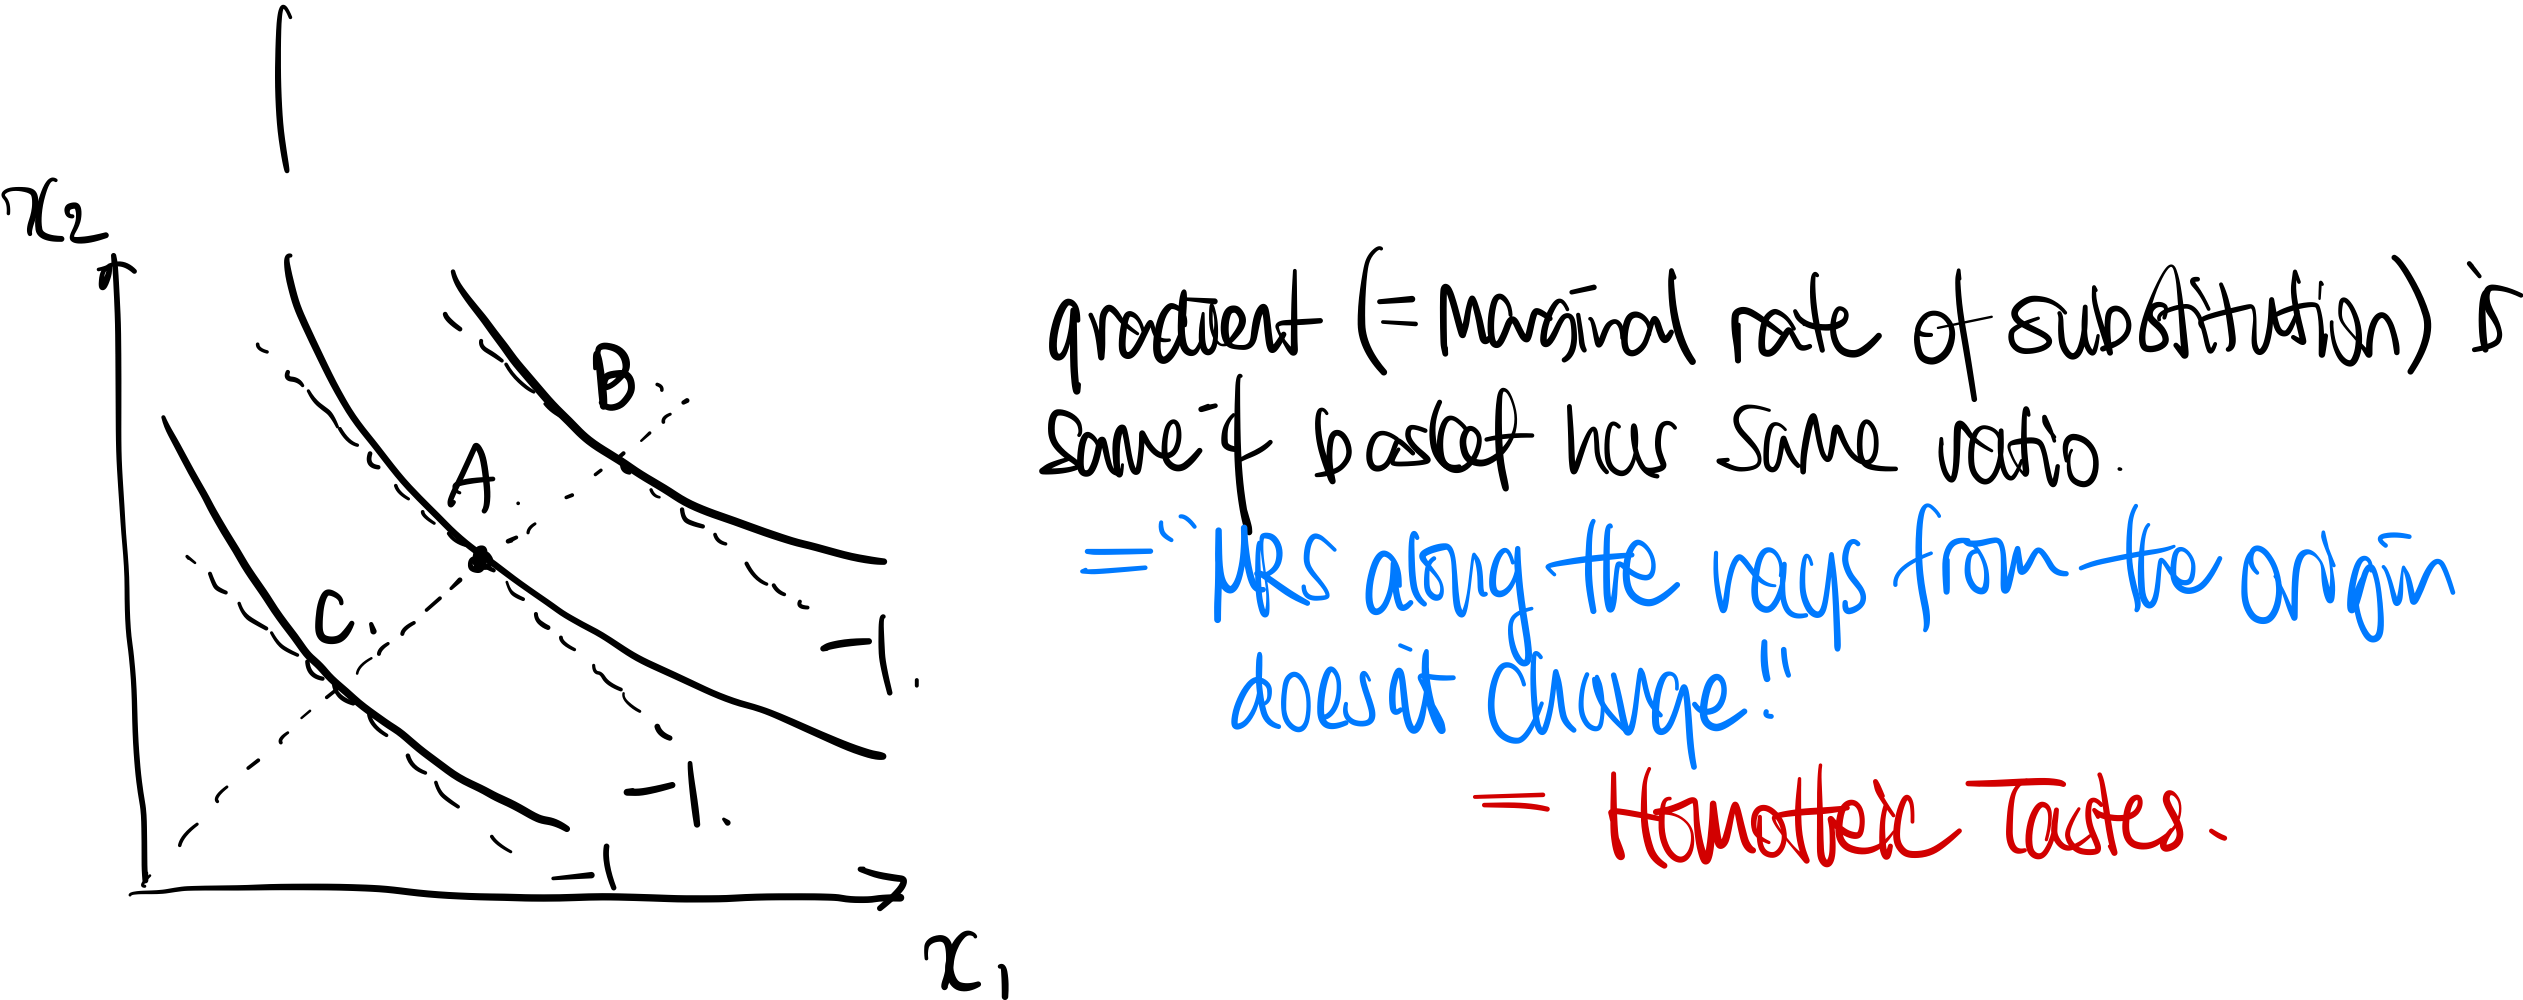 x2
B
A
C.
-1.
-1.
-1
x1
gradient (= Marginal rate of substitution) is
same if basket has same ratio.
= "MRS along the rays from the origin
doesn't change!"
= Homothetic Tastes.